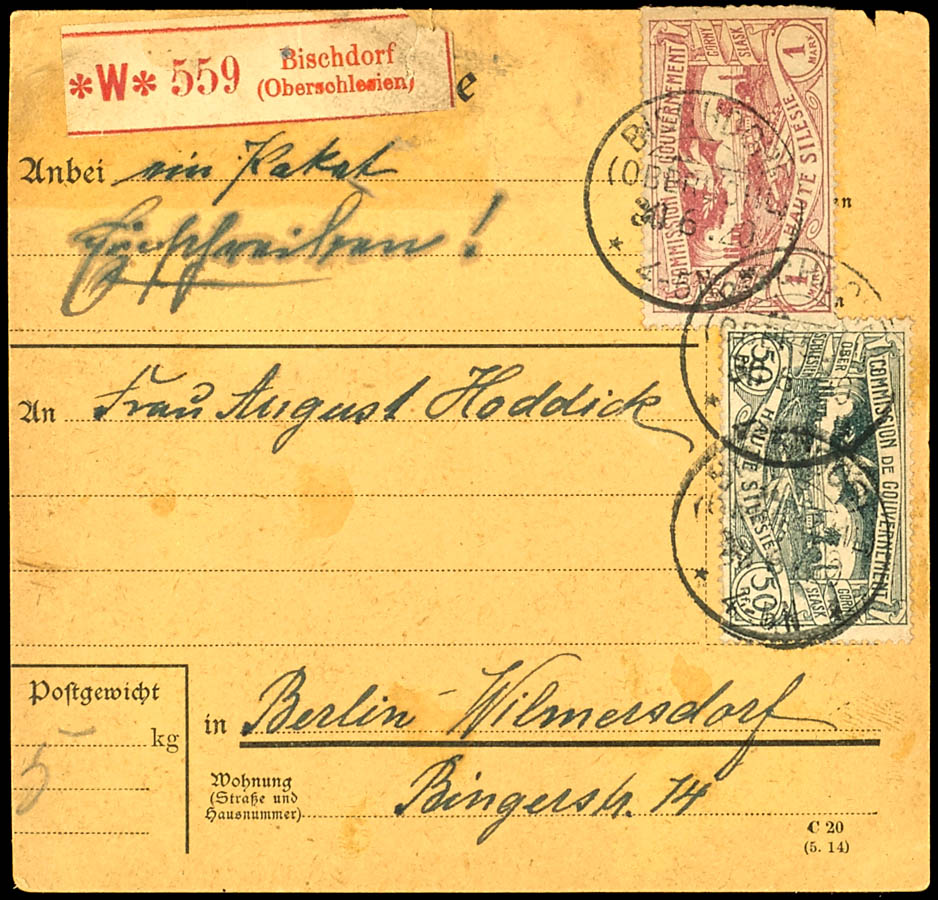 *W* 559 Bischdorf
(Oberschlesien)
e
Anbei ein Paket
Einschreiben!
An Frau August Hoddick
Postgewicht
5 kg
in Berlin-Wilmersdorf
Wohnung
(Straße und
Hausnummer)
Bingerstr. 14
C 20
(5. 14)
COMMISSION DE GOUVERNEMENT
HAUTE SILESIE
GORNY
SLASK
1
MARK
1
COMMISSION DE GOUVERNEMENT
HAUTE SILESIE
OBER
SCHLESIEN
GORNY
SLASK
50
50
en
n